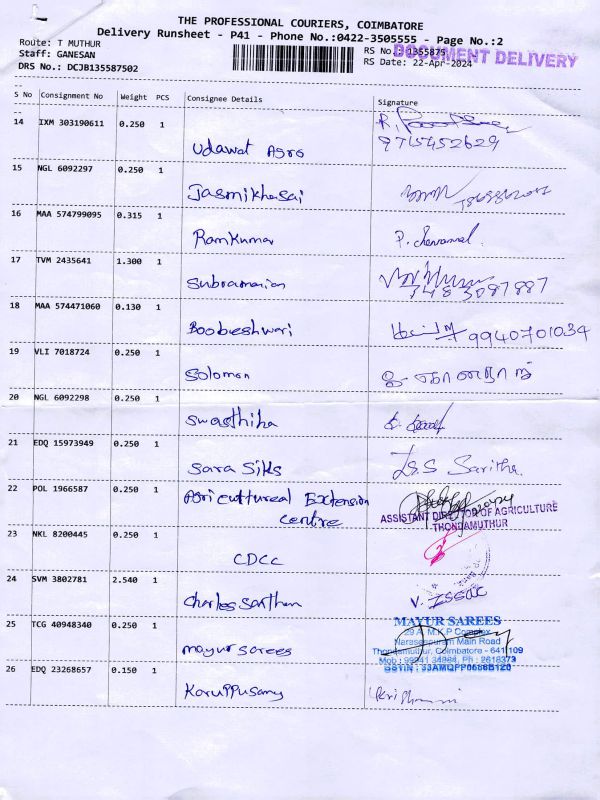 THE PROFESSIONAL COURIERS, COIMBATORE
Delivery Runsheet - P41 - Phone No.:0422-3505555 - Page No.:2
Route: T MUTHUR
RS No.: 1355875
DOCUMENT DELIVERY
Staff: GANESAN
RS Date: 22-Apr-2024
DRS No.: DCJB135587502
S No Consignment No Weight PCS Consignee Details Signature
14 IXM 303190611 0.250 1
Udawat Agro 9715452629
15 NGL 6092297 0.250 1
Jasmikhasai
16 MAA 574799095 0.315 1
Ramkumar
17 TVM 2435641 1.300 1
Subramanian 7483087887
18 MAA 574471060 0.130 1
Boobeshwari 9940701034
19 VLI 7018724 0.250 1
Solomon
20 NGL 6092298 0.250 1
Swasthika
21 EDQ 15973949 0.250 1
Sara Silks Saritha
22 POL 1966587 0.250 1
Agricultureal Extension
Centre
ASSISTANT DIRECTOR OF AGRICULTURE
THONDAMUTHUR
23 NKL 8200445 0.250 1
CDCC
24 SVM 3802781 2.540 1
Charles Santhan V. ISSAC
25 TCG 40948340 0.250 1
Mayur Sarees
MAYUR SAREES
29 A, M.K.P Complex
Naraseepuram Main Road
Thondamuthur, Coimbatore - 641 109
26 EDQ 23268657 0.150 1
Karuppusamy